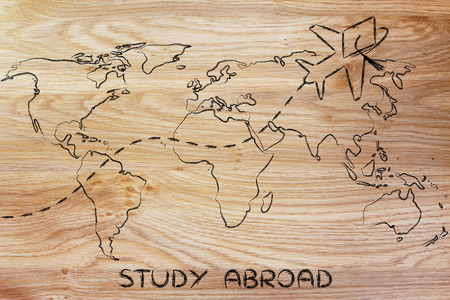 STUDY ABROAD